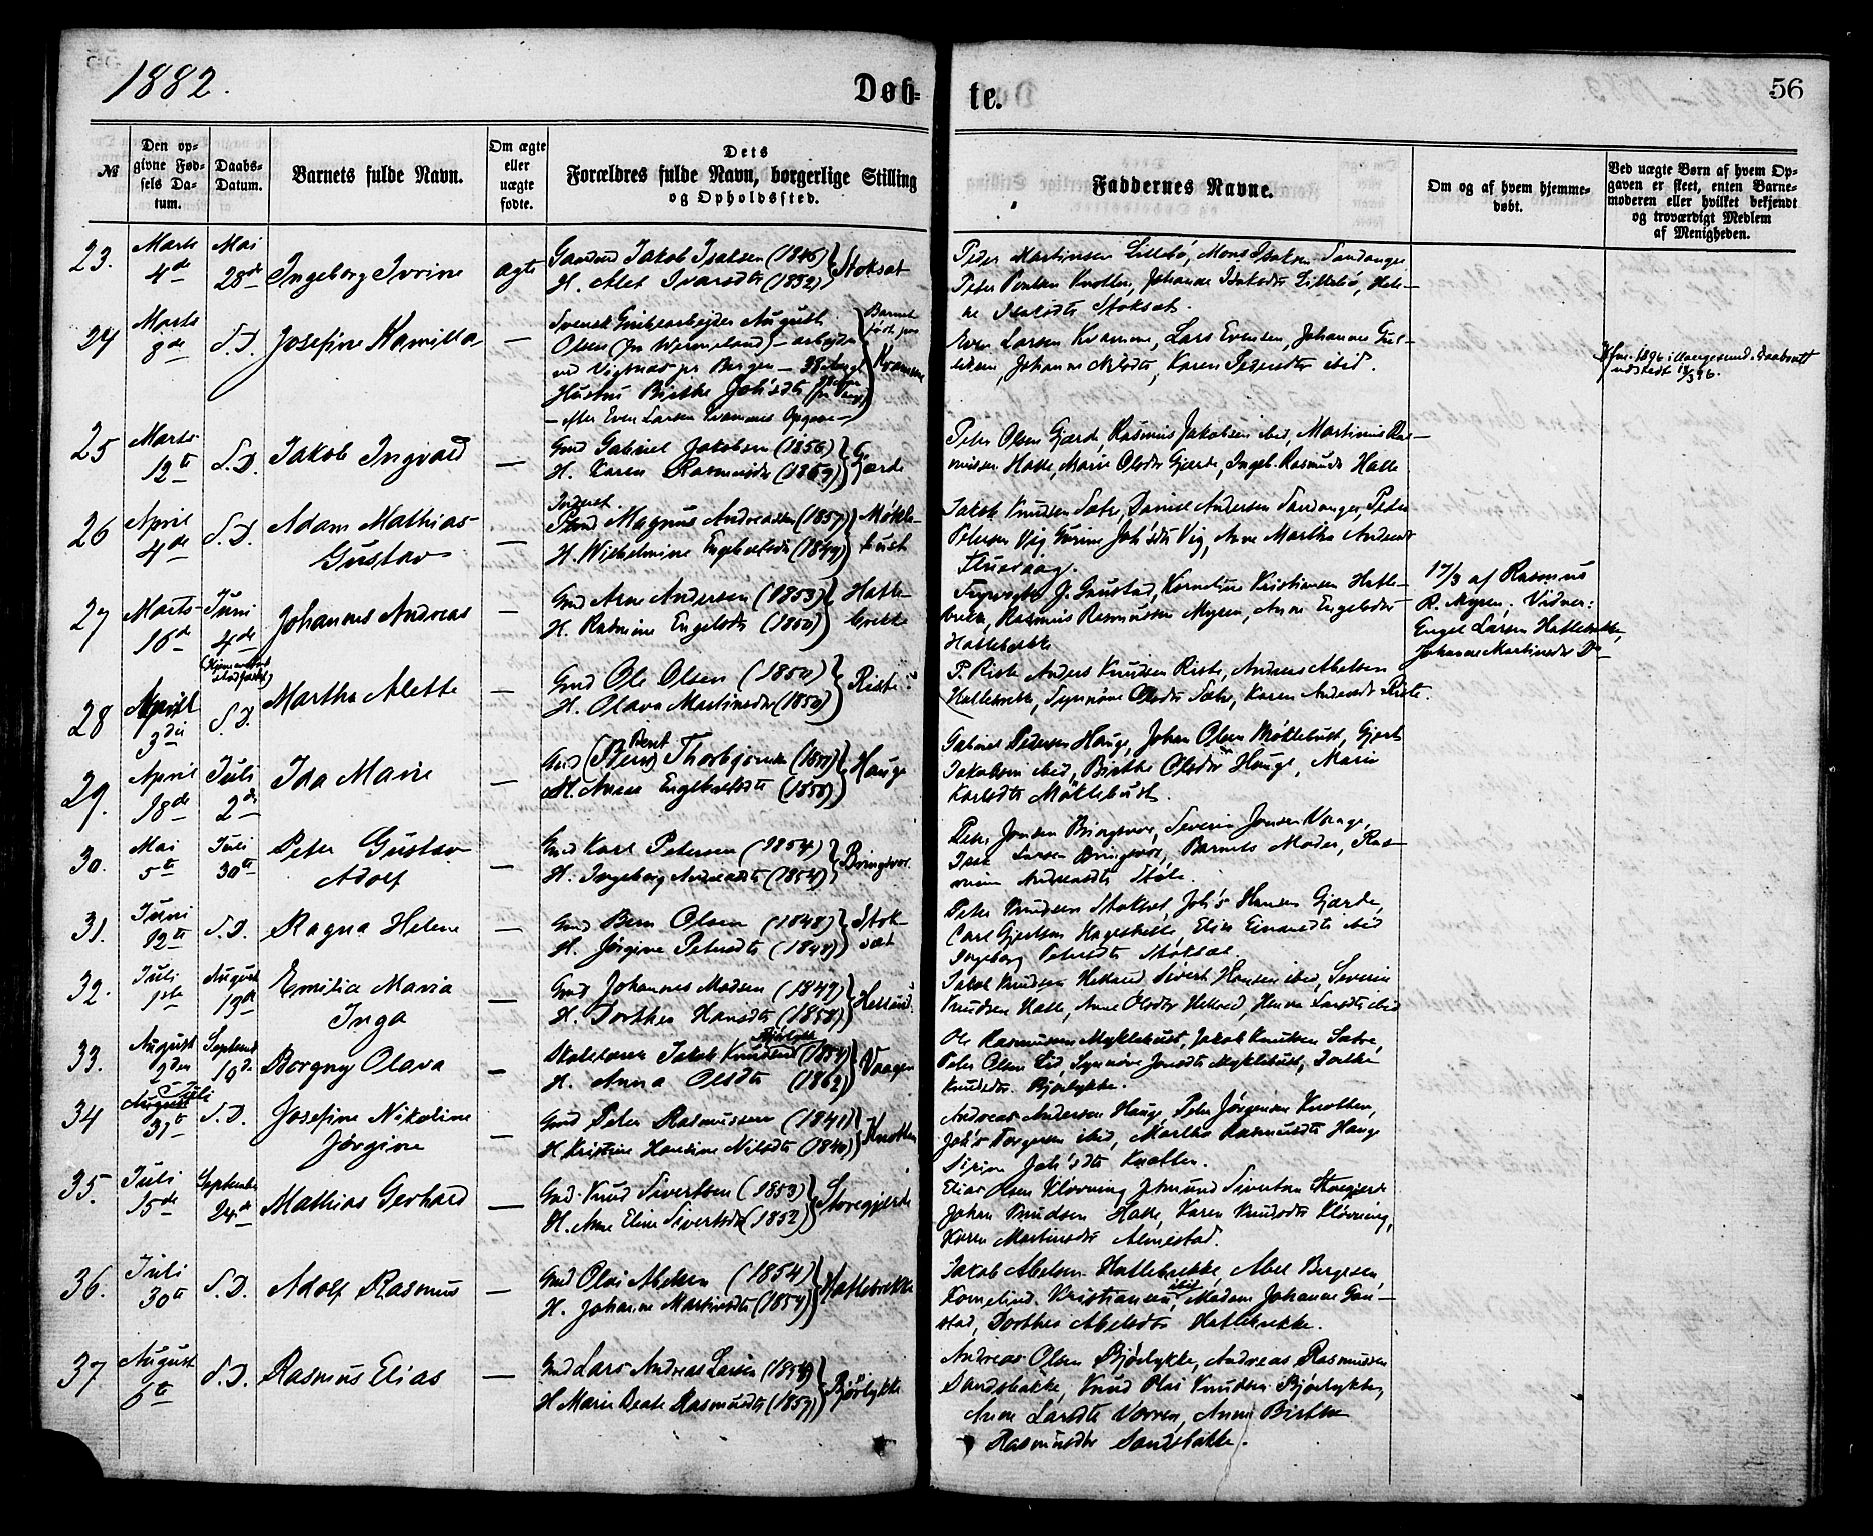 1882.
Døb-
te.
56
№
Den op-
givne Fød-
sels Da-
tum.
Daabs-
Datum.
Barnets fulde Navn.
Om ægte
eller
uægte
fødte.
Dets
Forældres fulde Navn, borgerlige Stilling
og Opholdssted.
Faddernes Navne.
Om og af hvem hjemme-
døbt.
Ved uægte Børn af hvem Op-
gaven er skeet, enten Barne-
moderen eller hvilket bekjendt
og troværdigt Medlem
af Menigheden.
23. Marts 4de Mai 28de Ingeborg Ivrine ægte
Jakob Isaksen (1846) Stoksæt
H. Alet Ivarsdtr (1852)
Peder Martinsen Lillebø, Mons Isaksen Sandanger
Johanne Isaksdtr Lillebø, Hele-
ne Isaksdtr Stoksæt.
24 Marts 8de S.D. Josefine Kamilla —
Svensk August
Olsen (fra Wermeland) - arbejder
ved Vigsnæs pr Bergen
Hustru Birthe Joh'sdtr
- efter Even Larsen Kvammes Opgave -
Barnet født paa Kvamme
Even Larsen Kvamme, Lars Evensen, Johannes
Johanne Nilsdtr, Karen Pedersdtr ibid.
25 Marts 12te S.D. Jakob Ingvald —
Gmd Gabriel Jakobsen (1856) Gjærde
H. Karen Rasmusdtr (1859)
Peter Olsen Gjærde, Rasmus Jakobsen ibid, Martinus Ras-
mussen Hatle, Marie Olsdtr Gjærde, Ingeb. Rasmusdr Hatle
26 April 4de S.D. Adam Mathias
Gustav —
Inderst
Magnus Andreassen (1857) Møkle-
H. Wilhelmine Engebretsdtr (1849) bust
Jakob Knudsen Sætre, Daniel Andersen Sandanger, Peder
Petersen Vig, Gurine Joh'sdtr Vig, Anne Martha Andersdtr
Fluevaag.
27 Marts 16de Juni 4de Johannes Andreas —
Gmd Arne Andersen (1853) Hatle-
H. Rasmine Engelsdtr (1850) brekke
Fyrvogter J. Gaustad, Kornelius Kristiansen Hatle-
brekke, Rasmus Rasmussen Myren, Anne Engelsdtr
Hatlebrekke
17/3 af Rasmus
R. Myren; Vidner:
Engel Larsen Hatlebrekke,
Johanne Martinsdtr Do
28 April 3die S.D. Martha Alette —
Gmd Ole Olsen (1850) Riste
H. Olava Martinsdtr (1850)
P. Riste Anders Knudsen Riste, Andreas Abelsen
Hatlebrekke, Synnøve Olsdtr Sætre, Karen Andersdtr Riste.
29. April 18de Juli 2den Ida Marie —
Gmd Bernt Thorbjørnsen Hauge
H. Anne Engebretsdtr (1850)
Gabriel Pedersen Hauge, Johan Olsen Møklebust, Gjert
Jakobsen ibid, Birthe Olsdtr Hauge, Marie
Karlsdtr Møklebust.
30. Mai 5te Juli 30te Peter Gustav
Adolf —
Gmd Karl Petersen (1854) Bringsvor.
H. Ingeborg Andreasdtr (1854)
Peder Jonsen Bringsvor, Severin Jonsen Vaage,
Isak Larsen Bringsvor, Barnets Moder, Ras-
mine Andreasdtr Støle.
31. Juni 12te S.D. Ragna Helene —
Gmd Bern Olsen (1848) Stok-
H. Jørgine Petersdtr (1848) sæt
Peter Knudsen Stoksæt, Joh's Hansen Gjærde,
Carl Gjertsen Hageskille, Elise Einarsdtr ibid
Ingeborg Petersdtr Stoksæt.
32. Juli 1ste August 13de Emilia Maria
Inga —
Gmd Johannes Madsen (1849) Helland.
H. Dorthea Hansdtr (1858)
Jakob Knudsen Helland, Sivert Hansen ibid, Severin
Knudsen Hatle, Anne Olsdtr Helland, Hanna Larsdtr ibid
33. August 9den September 10de Borgny Olava —
Skolelærer Jakob Knudsen Bjørlykke (1854) Vaagen
H. Anna Olsdtr (1862)
Ole Rasmussen Myklebust, Jakob Knudsen Sætre,
Peter Olsen Eid, Synnøve Jonsdtr Myklebust, Dorthe
Knudsdtr Bjørlykke.
34 Juli 31te S.D. Josefine Nikoline
Jørgine —
Gmd Peter Rasmussen (1841) Knotten
H Kristine Hansine Nilsdtr (1840)
Andreas Andersen Hauge, Peter Jørgensen Knotten,
Joh's Torgersen ibid, Martha Rasmusdtr Hauge
Sirine Joh'sdtr Knotten.
35. Juli 15de September 24de Mathias Gerhard —
Gmd. Knud Sivertsen (1853) Storegjerde
H. Anne Eline Sivertsdtr (1852)
Elias Olsen Kløvning, Jetmund Sivertsen Storegjerde
Johan Knudsen Hatle, Karen Knudsdtr Kløvning,
Karen Martinsdtr Almestad.
36. Juli 30te S.D. Adolf Rasmus —
Gmd Olai Abelsen (1854) Hatlebrekke
H. Johanne Martinsdtr (1854)
Jakob Abelsen Hatlebrekke, Abel Bergesen,
Kornelius Kristiansen ibid, Madam Johanne Gau-
stad, Dorthea Abelsdtr Hatlebrekke.
37 August 6te S.D. Rasmus Elias —
Gmd Lars Andreas Larsen (1854) Bjørlykke
H Marie Beate Rasmusdtr (1859)
Andreas Olsen Bjørlykke, Andreas Rasmussen
Sandsbakke, Knud Olai Knudsen Bjørlykke,
Anne Larsdtr Norren, Anne Birthe
Rasmusdtr Sandsbakke.